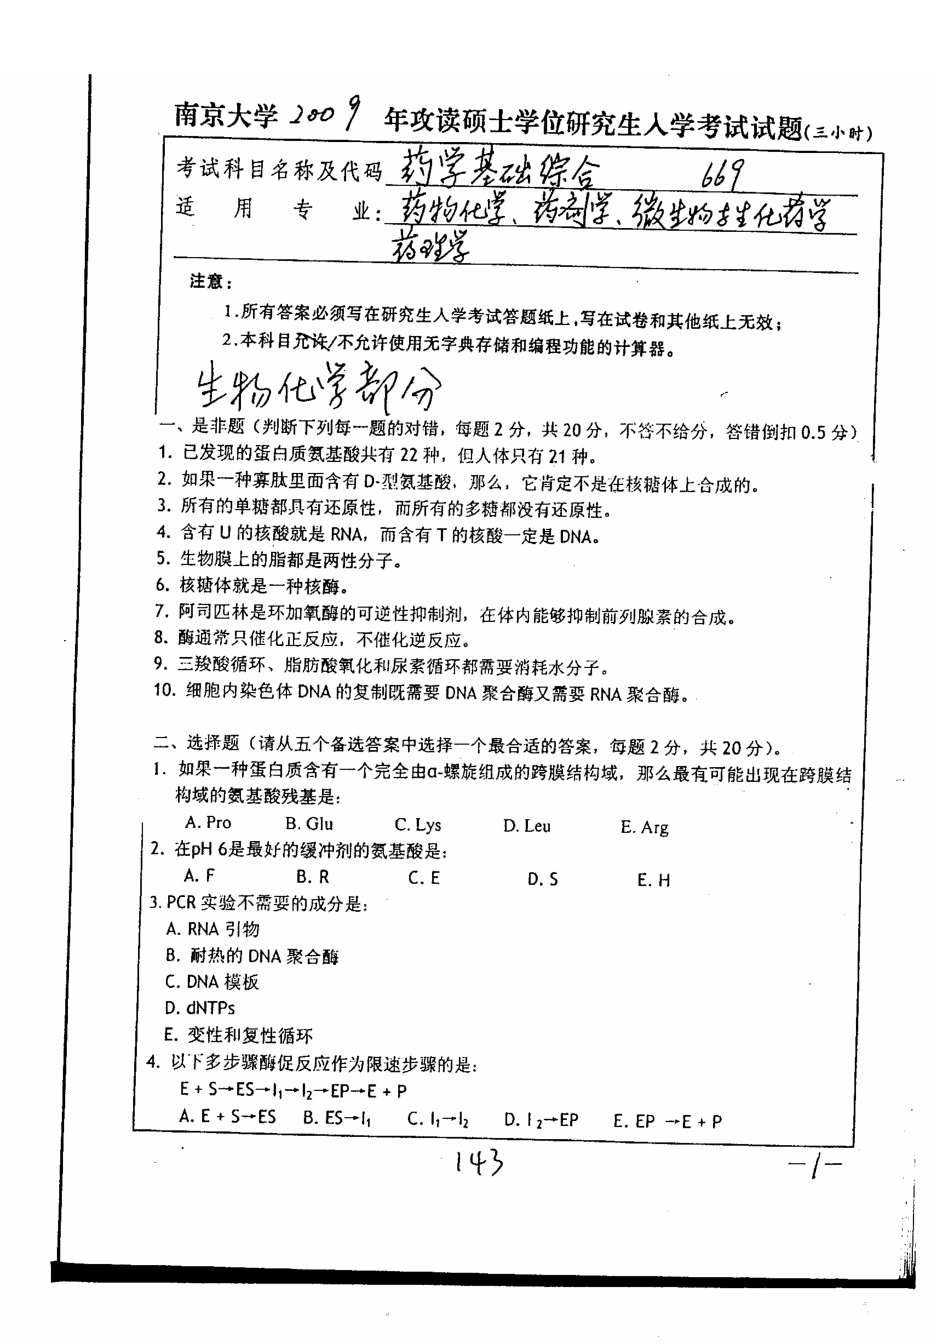 南京大学 2009 年攻读硕士学位研究生入学考试试题(三小时)
考试科目名称及代码 药学基础综合 669
适用专业：药物化学、药剂学、微生物与生化药学
药理学
注意：
1.所有答案必须写在研究生入学考试答题纸上,写在试卷和其他纸上无效；
2.本科目允许/不允许使用无字典存储和编程功能的计算器。
生物化学部分
一、是非题（判断下列每一题的对错，每题 2 分，共 20 分，不答不给分，答错倒扣 0.5 分）
1. 已发现的蛋白质氨基酸共有 22 种，但人体只有 21 种。
2. 如果一种寡肽里面含有 D-型氨基酸，那么，它肯定不是在核糖体上合成的。
3. 所有的单糖都具有还原性，而所有的多糖都没有还原性。
4. 含有 U 的核酸就是 RNA，而含有 T 的核酸一定是 DNA。
5. 生物膜上的脂都是两性分子。
6. 核糖体就是一种核酶。
7. 阿司匹林是环加氧酶的可逆性抑制剂，在体内能够抑制前列腺素的合成。
8. 酶通常只催化正反应，不催化逆反应。
9. 三羧酸循环、脂肪酸氧化和尿素循环都需要消耗水分子。
10. 细胞内染色体 DNA 的复制既需要 DNA 聚合酶又需要 RNA 聚合酶。
二、选择题（请从五个备选答案中选择一个最合适的答案，每题 2 分，共 20 分）。
1. 如果一种蛋白质含有一个完全由α-螺旋组成的跨膜结构域，那么最有可能出现在跨膜结
构域的氨基酸残基是：
A. Pro B. Glu C. Lys D. Leu E. Arg
2. 在pH 6是最好的缓冲剂的氨基酸是：
A. F B. R C. E D. S E. H
3. PCR 实验不需要的成分是：
A. RNA 引物
B. 耐热的 DNA 聚合酶
C. DNA 模板
D. dNTPs
E. 变性和复性循环
4. 以下多步骤酶促反应作为限速步骤的是：
E + S→ES→I₁→I₂→EP→E + P
A. E + S→ES B. ES→I₁ C. I₁→I₂ D. I ₂→EP E. EP →E + P
143
-1-